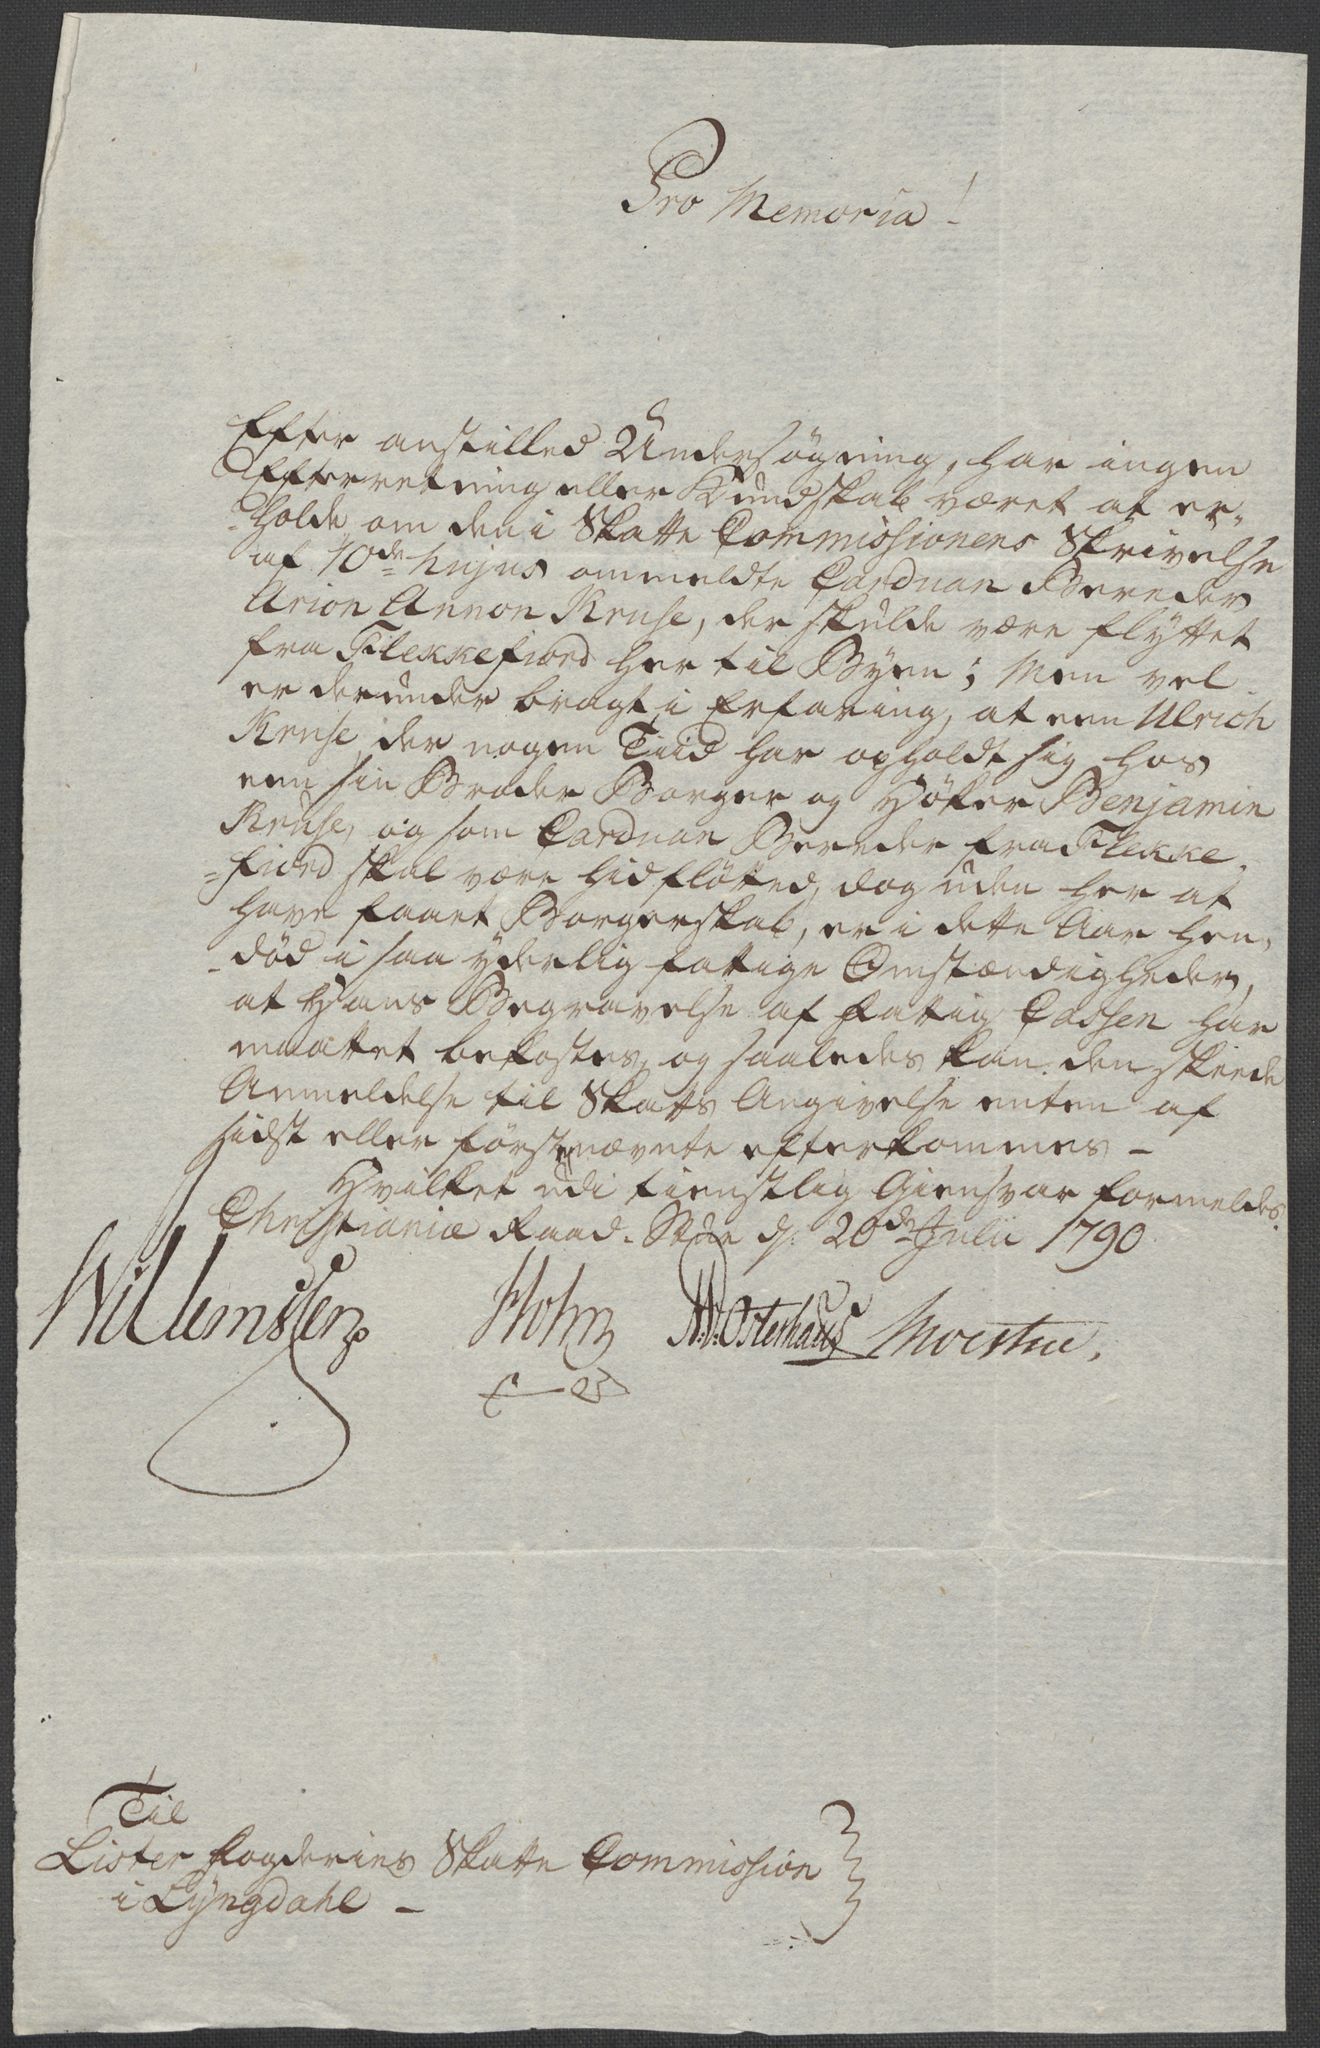 Pro Memoria!
Efter anstilled Undersøgning, har ingen
Efterretning eller Kundskab været at er-
-holde om den i Skatte Commissionens Skrivelse
af 10de hujus ommeldte Carduan Bereder
Arion Annon Kruse, der skulde være flyttet
fra Flekkefiord her til Byen; Men vel
er derunder bragt i Erfaring, at een Ulrich
Kruse, der nogen Tiid har opholdt sig hos
een sin Broder Borger og Høker Benjamin
Kruse, og som Carduan Bereder fra Flekke-
=fiord skal være hidfløtted, dog uden her at
have faaet Borgerskab, er i dette Aar hen-
-død i saa yderlig fattige Omstændigheder,
at Hans Begravelse af Fattig Cassen har
maattet bekostes, og saaledes kan den skeede
Anmeldelse til Skatts Angivelse enten af
sidst eller førstnævnte efterkommes -
Hvilket udi tienstlig Giensvar formeldes.
Christianiæ Raad-Stue d: 20de Julii 1790
Willumssen Holm Osterhaus
Til
Lister Fogderies Skatte Commission
i Lyngdahl -